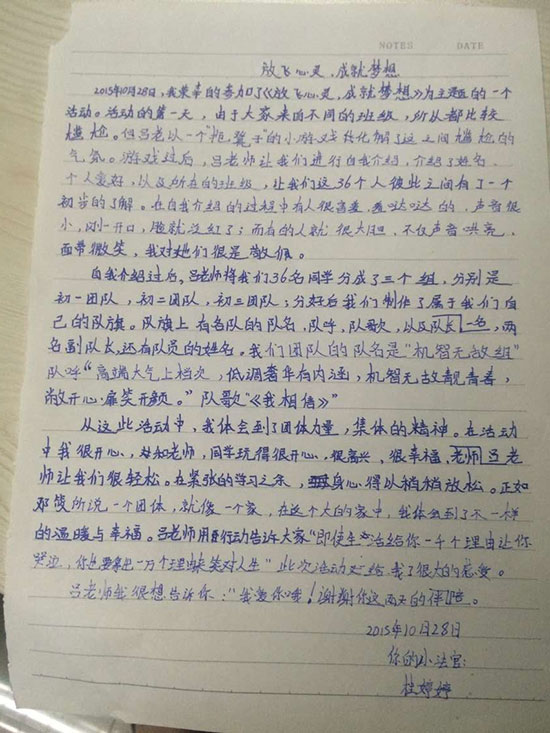 NOTES DATE
放飞心灵,成就梦想
2015年10月28日,我荣幸的参加了《放飞心灵,成就梦想》为主题的一个
活动。活动的第一天,由于大家来自不同的班级,所以都比较
尴尬。但吕老以一个"抱凳子"的小游戏 化解了这之间尴尬的
气氛。游戏过后,吕老师让我们进行自我介绍,介绍了姓名、
个人爱好,以及所在的班级,让我们这36个人彼此之间有了一个
初步的了解。在自我介绍的过程中有人很害羞, 哒哒的,声音很
小,刚一开口,脸就没红了;而有的人就很大胆,不仅声音哄亮,
面带微笑,我对她们很是敬佩。
自我介绍过后,吕老师将我们36名同学分成了三个组,分别是
初一团队,初二团队,初三团队;分好后我们制作了属于我们自
己的队旗。队旗上有各队的队名,队呼,队歌,以及队长一名,两
名副队长,还有队员的姓名。我们团队的队名是"机智无敌组"
队呼"高端大气上档次,低调奢华有内涵,机智无敌靓青春,
敞开心扉笑开颜。"队歌"《我相信》"
从这此活动中,我体会到了团体力量,集体的精神。在活动
中我很开心,和老师,同学玩得很开心,很高兴,很幸福,老师吕老
师让我们很轻松。在紧张的学习之余,身心得以稍稍放松。正如
邓 所说一个团体,就像一个家,在这个大的家中,我体会到了不一样
的温暖与幸福。吕老师用行动告诉大家"即使生活给你一千个理由让你
哭泣,你也要拿出一万个理由笑对人生"此次活动 给我了很大的感受。
吕老师我很想告诉你:"我爱你哦!谢谢你这两天的伴陪。
2015年10月28日
你的小法官:
桂婷婷